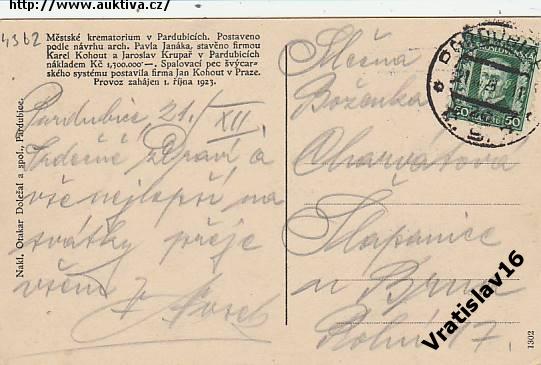 http://www.auktiva.cz/
4362
Městské krematorium v Pardubicích. Postaveno
podle návrhu arch. Pavla Janáka, stavěno firmou
Karel Kohout a Jaroslav Krupař v Pardubicích
nákladem Kč 1,300.000·—. Spalovací pec švýcar-
ského systému postavila firma Jan Kohout v Praze.
Provoz zahájen 1. října 1923.
Pardubice 21./XII.
Srdečně zdraví a
vše nejlepší na
svátky přeje
všem
Slečna
Boženka
Charvátova
Šlapanice
u Brna
Polní 17.
50 50
Nakl. Otakar Doležal a spol., Pardubice.
1302
Vratislav16